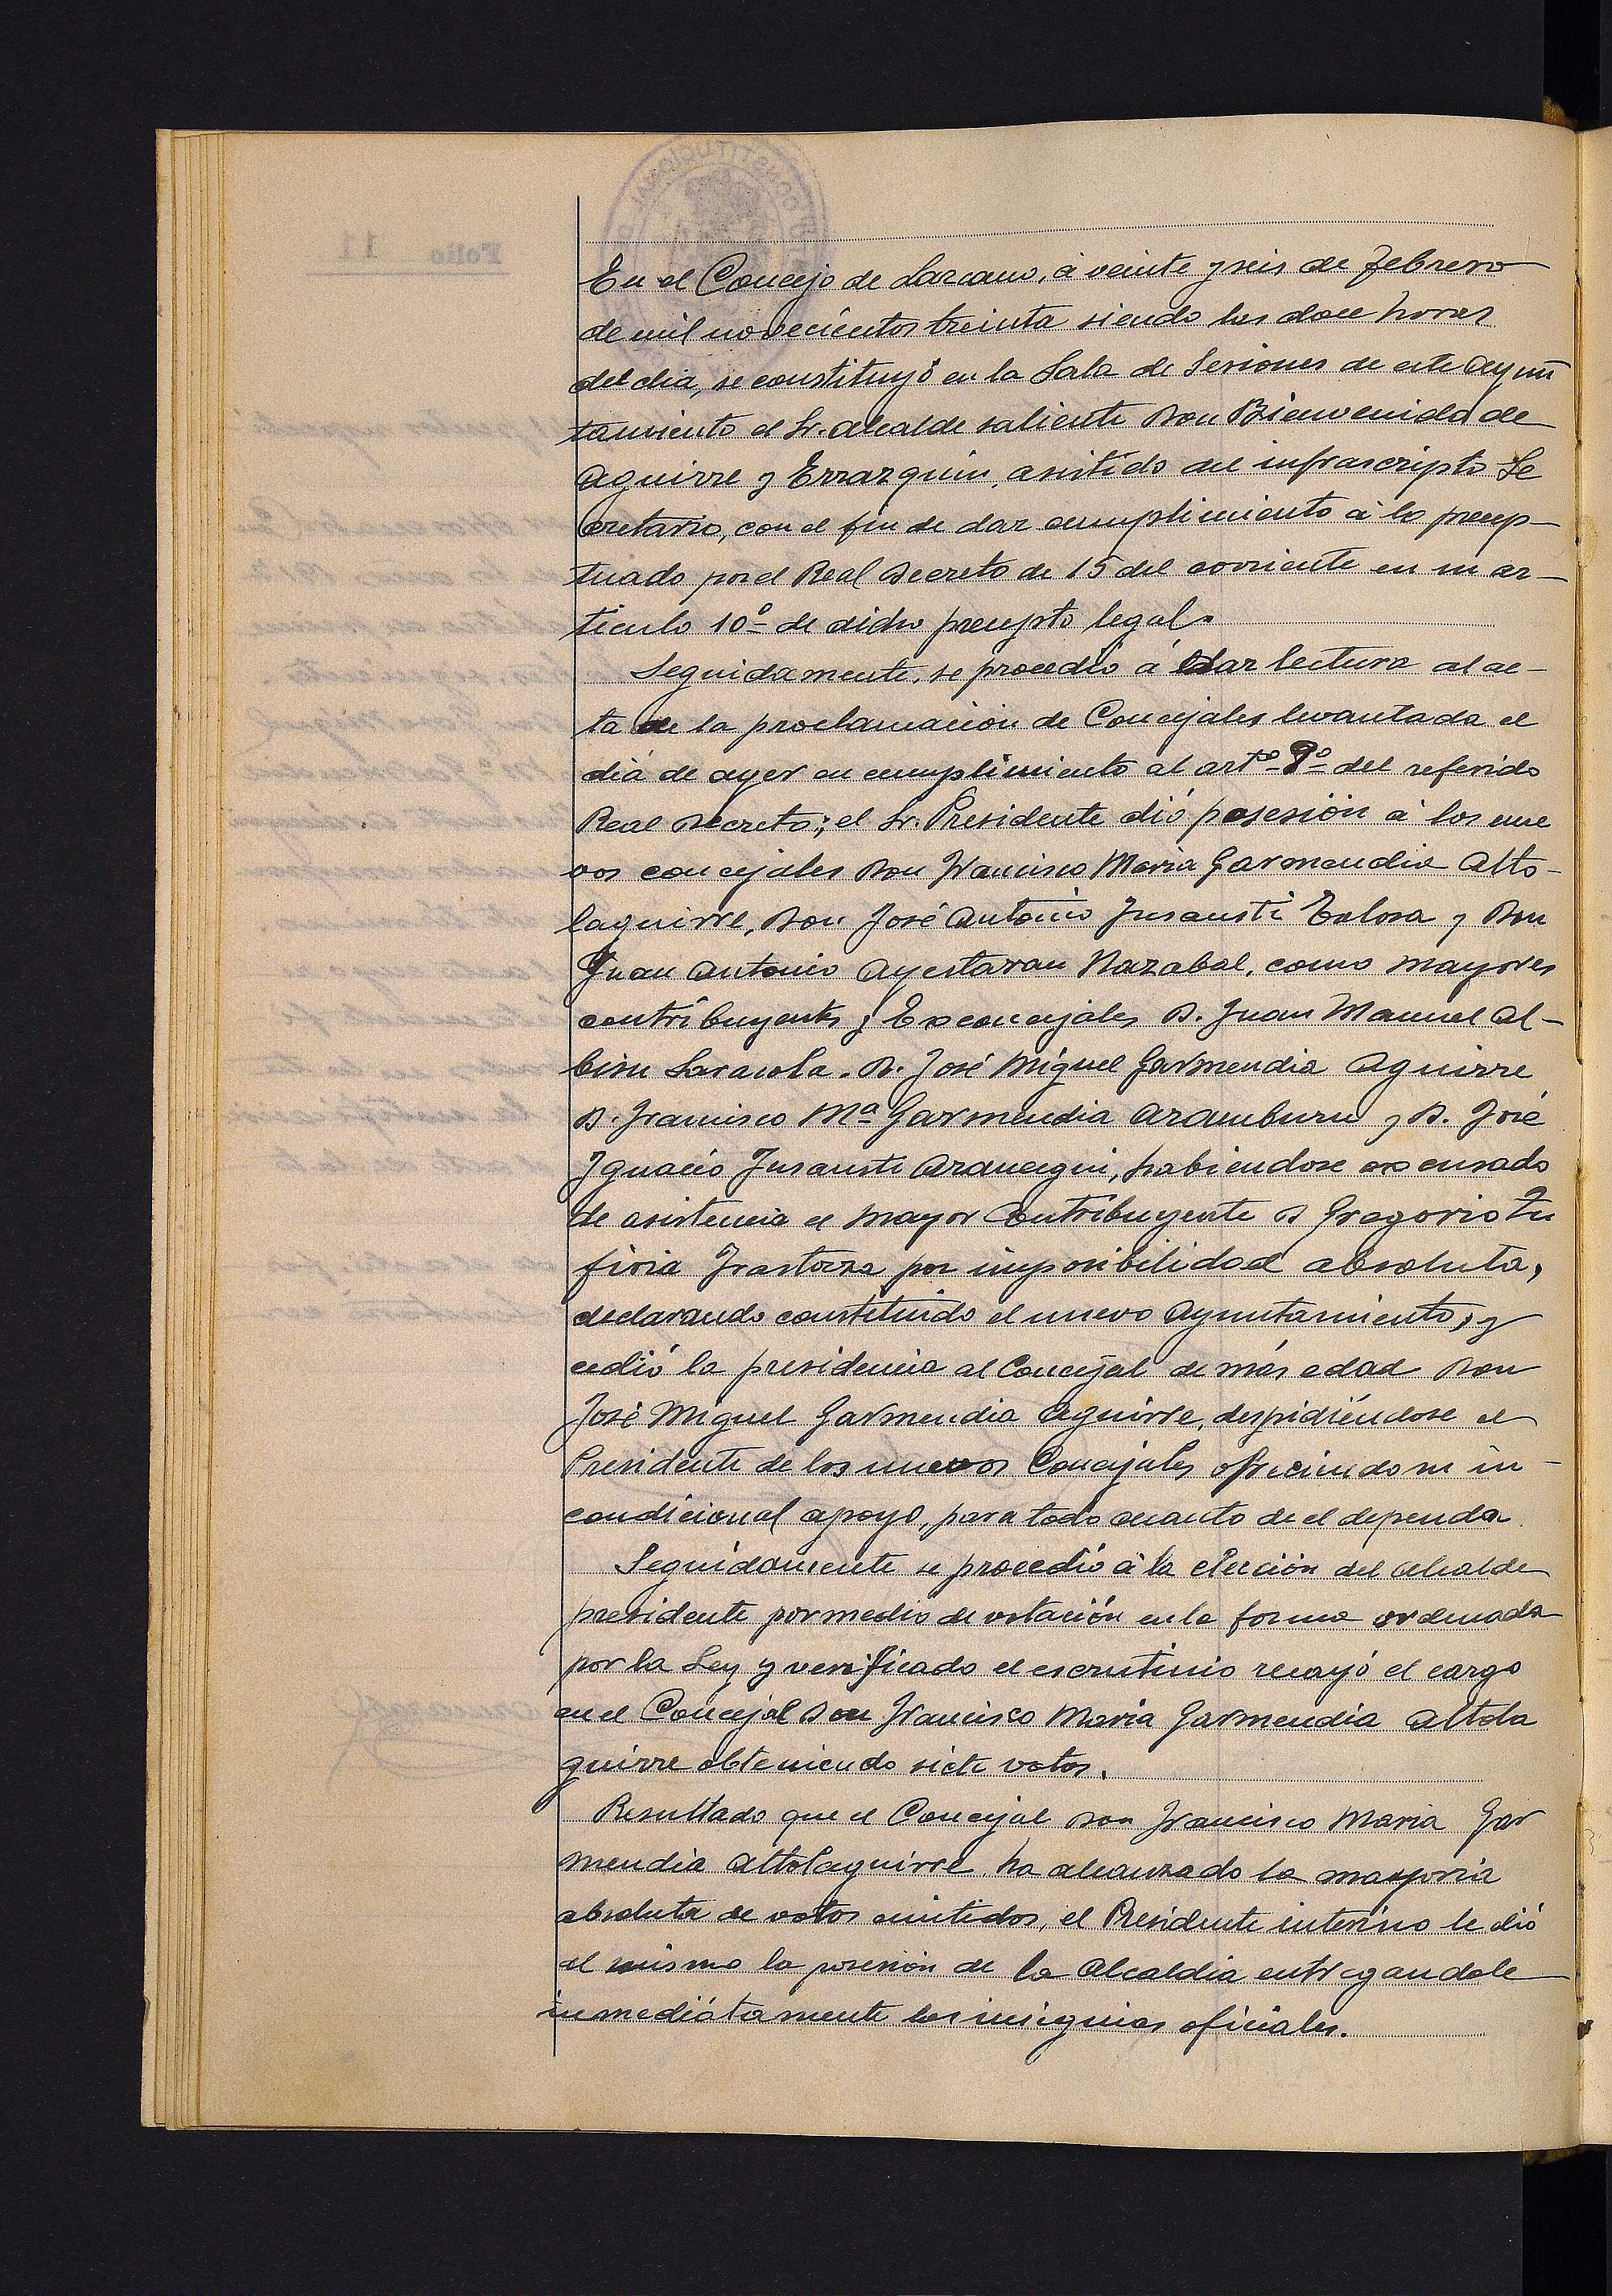 En el Concejo de Lazcano, á veinte y seis de febrero
de mil novecientos treinta siendo las doce horas
del dia, se constituyó en la Sala de Sesiones de este Ayun
tamiento el Sr. Alcalde saliente Don Bienvenido de
Aguirre y Errazquin, asistido del infrascripto Se
cretario, con el fin de dar cumplimiento á lo precep-
tuado por el Real Decreto de 15 del corriente en su ar-
ticulo 10º de dicho precepto legal.
Seguidamente, se procedió á dar lectura al ac-
ta de la proclamación de Concejales levantada el
dia de ayer en cumplimiento al artº 9º del referido
Real Decreto; el Sr. Presidente dió posesión á los nue
vos concejales Don Francisco Maria Garmendia Alto-
laguirre, Don José Antonio Insausti Tolosa y Don
Juan Antonio Ayestaran Nazabal, como mayores
contribuyentes y Exconcejales D. Juan Manuel Al-
bisu Sarasola. D. José Miguel Garmendia Aguirre
D. Francisco Mª Garmendia Aramburu y D. José
Ignacio Insausti Arancegui, habiendose excusado
de asistencia el mayor Contribuyente D Gregorio Zu
firia Irastorza por imposibilidad absoluta,
declarando constituido el nuevo Ayuntamiento, y
cedió la presidencia al Concejal de más edad Don
José Miguel Garmendia Aguirre, despidiéndose el
Presidente de los nuevos Concejales ofreciendo su in-
condicional apoyo, para todo cuanto de el dependa
Seguidamente se procedió á la elección del Alcalde
presidente por medio de votación en la forma ordenada
por la Ley y verificado el escrutinio recayó el cargo
en el Concejal Don Francisco Maria Garmendia Altola
guirre obteniendo siete votos.
Resultado que el Concejal Don Francisco Maria Gar
mendia Altolaguirre ha alcanzado la mayoria
absoluta de votos emitidos, el Presidente interino le dió
al mismo la posesión de la Alcaldia entregandole
inmediátamente las insignias oficiales.